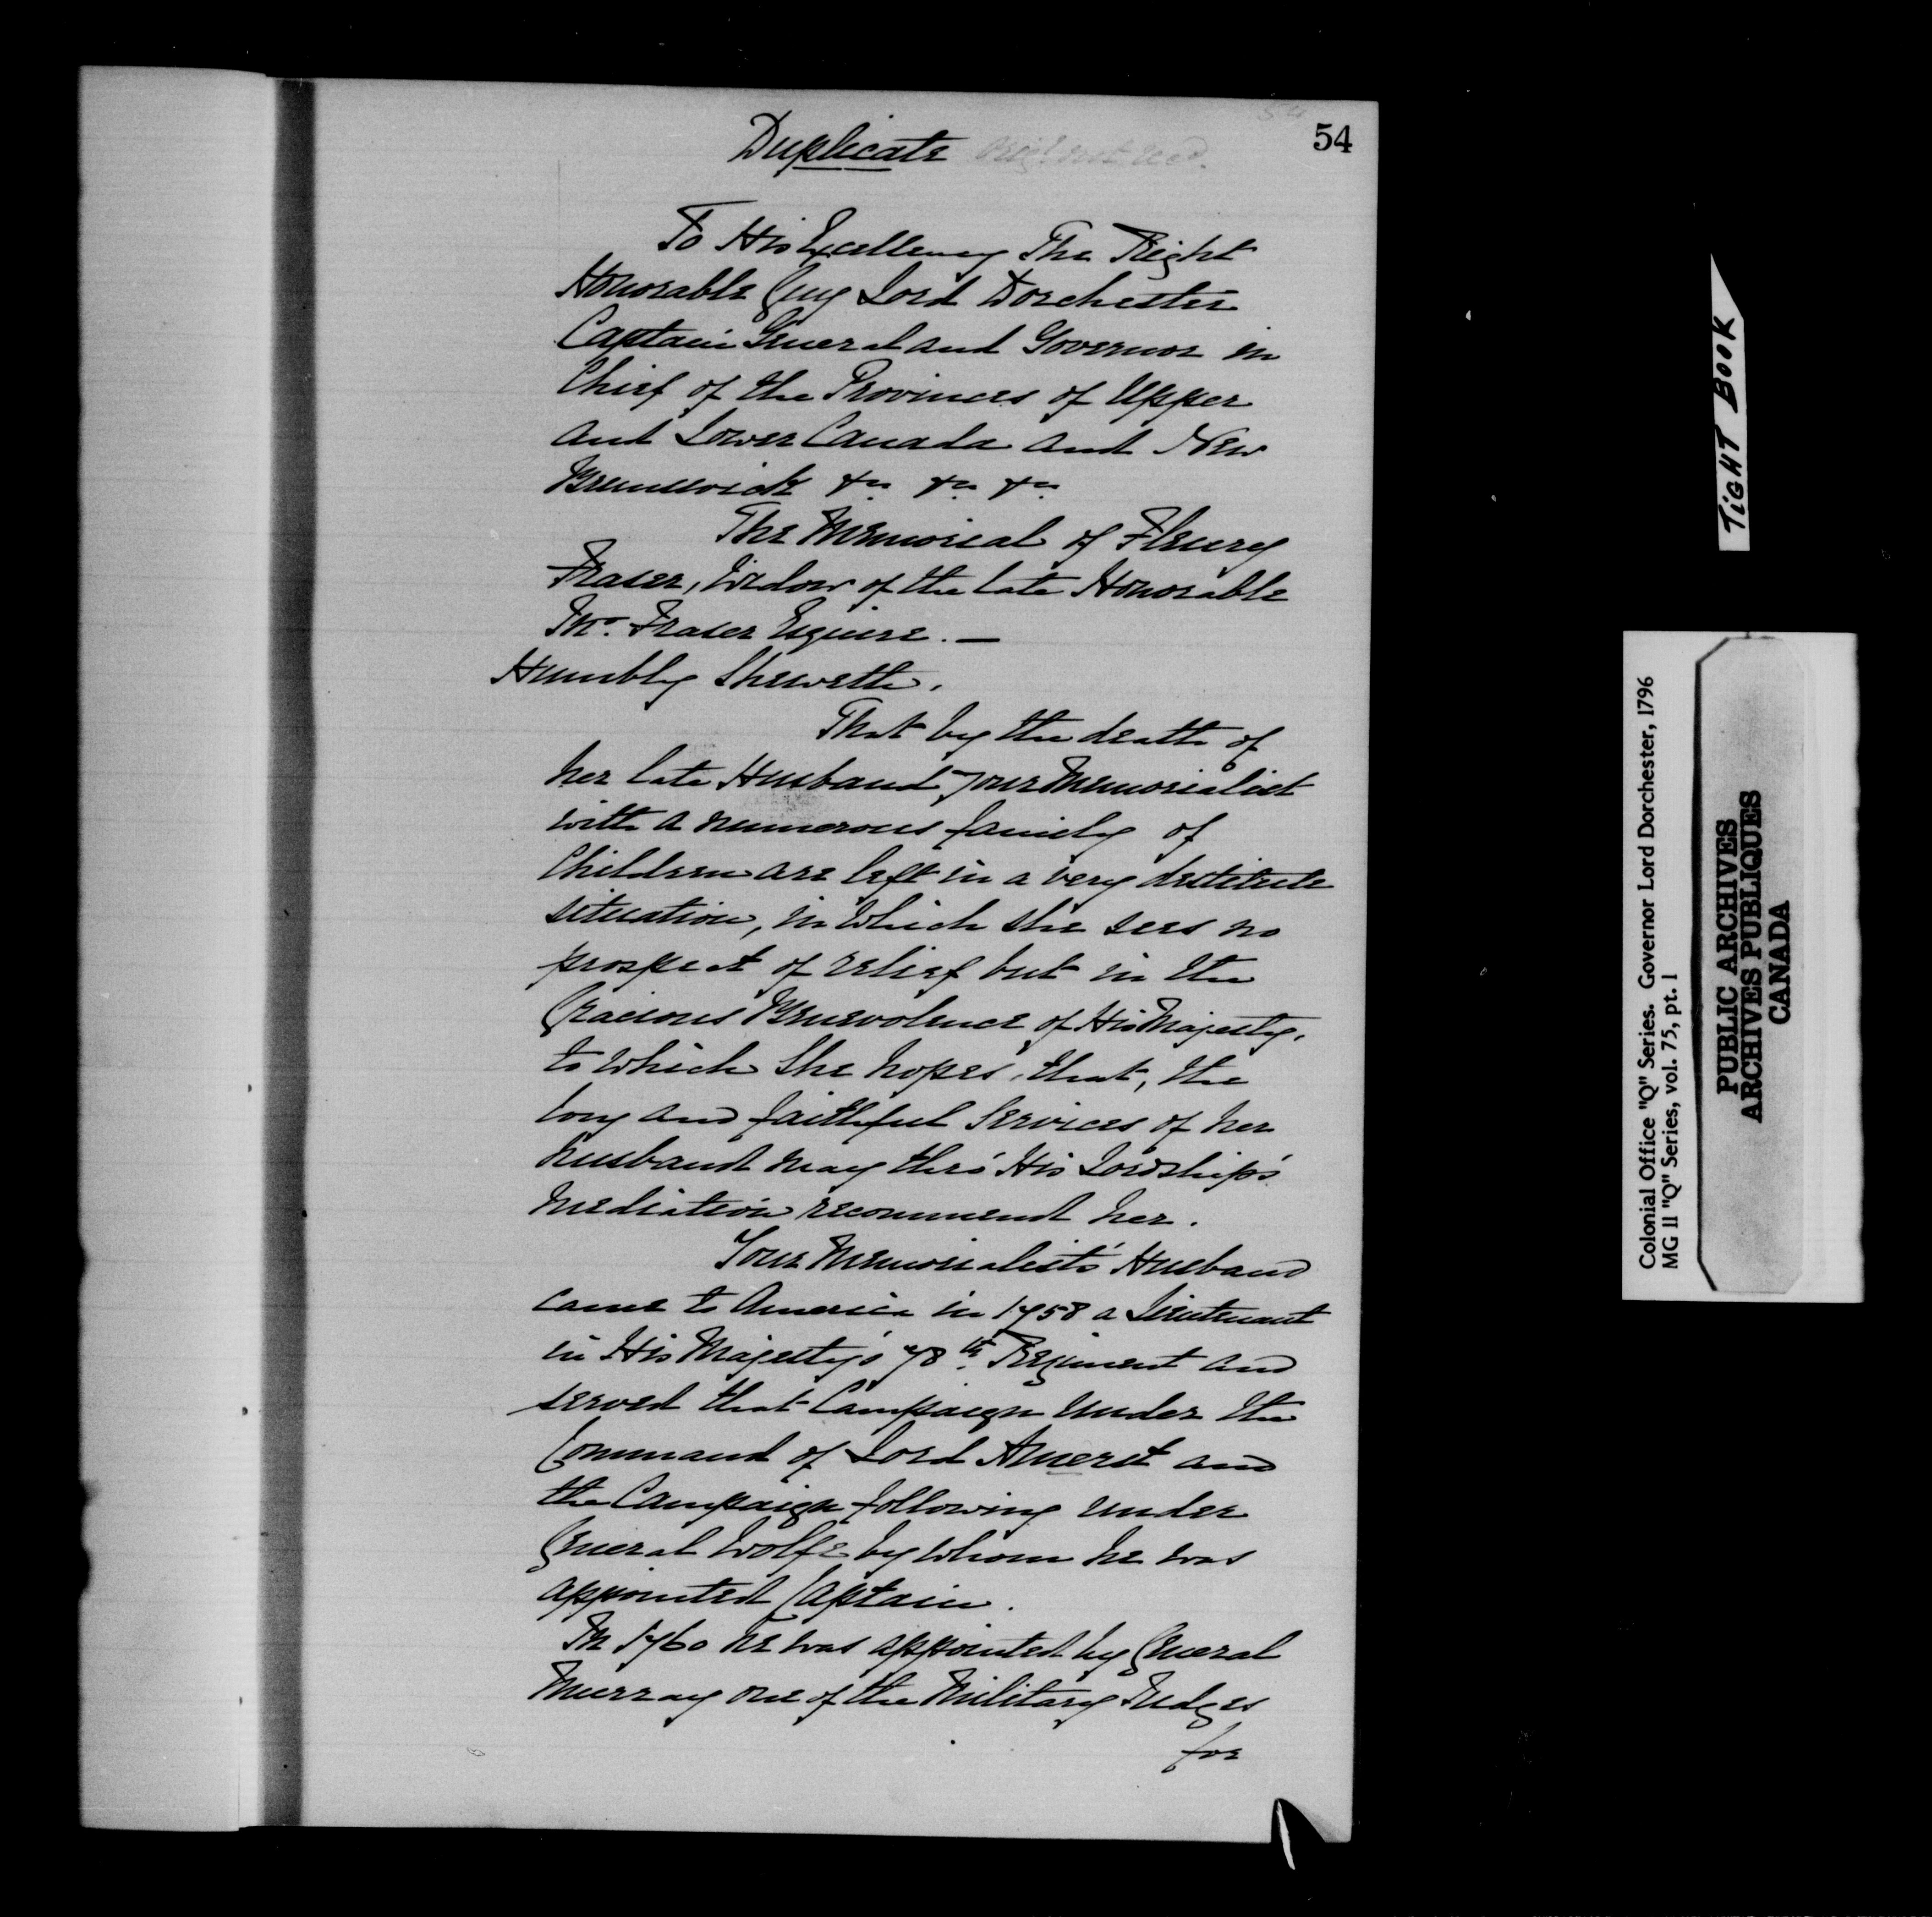 54
Duplicate Orig.l not rec.d
To His Excellency The Right
Honorable Guy Lord Dorchester
Captain General and Governor in
Chief of the Provinces of Upper
and Lower Canada and New
Brunswick &c. &c. &c.
The Memorial of Fleury
Fraser, Widow of the late Honorable
Mr. Fraser Esquire. —
Humbly Sheweth.
That by the death of
her late Husband your Memorialist
with a numerous family of
Children are left in a very destitute
situation, in which she sees no
prospect of relief but in the
Gracious Benevolence of His Majesty,
to which She hopes, that, the
long and faithful Services of her
husband may thro' His Lordship's
mediation recommend her.
Your Memorialist's Husband
came to America in 1758 a Lieutenant
in His Majesty's 78th. Regiment and
served that Campaign under the
Command of Lord Amerst and
the Campaign following under
General Wolfe by whom he was
appointed Captain.
In 1760 he was appointed by General
Murray one of the Military Judges
for
TIGHT BOOK
Colonial Office "Q" Series. Governor Lord Dorchester, 1796
MG 11 "Q" Series, vol. 75, pt. 1
PUBLIC ARCHIVES
ARCHIVES PUBLIQUES
CANADA